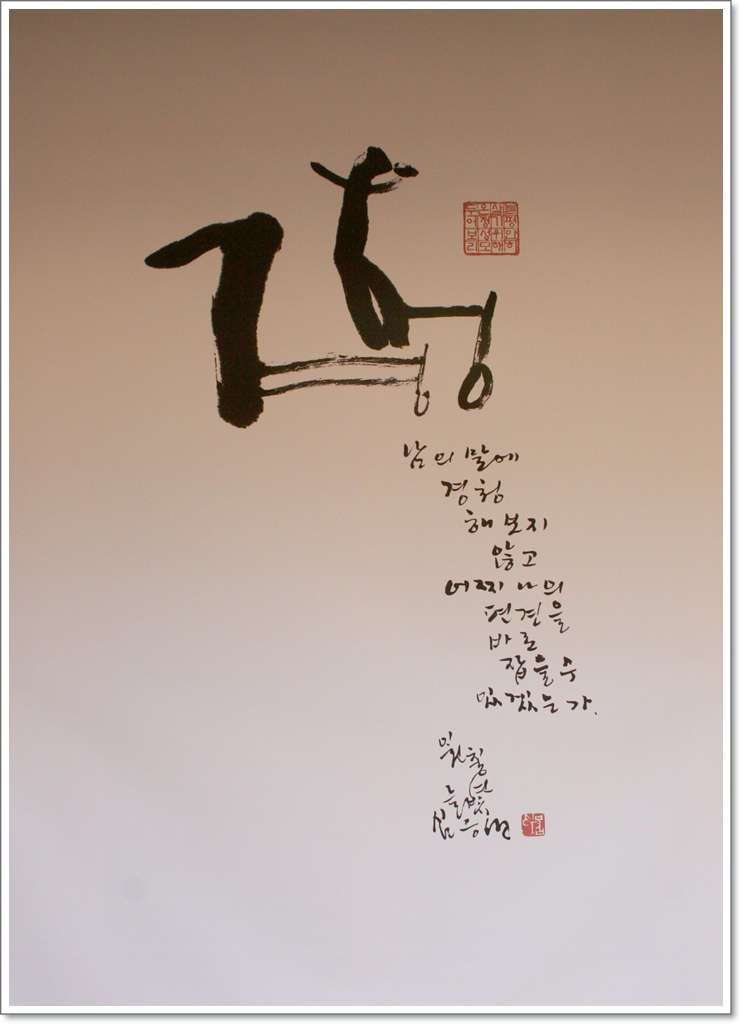 경청
남의 말에
경청
해 보지
않고
어찌 나의
편견을
바로
잡을 수
있겠는가.
늘빛
심응섭